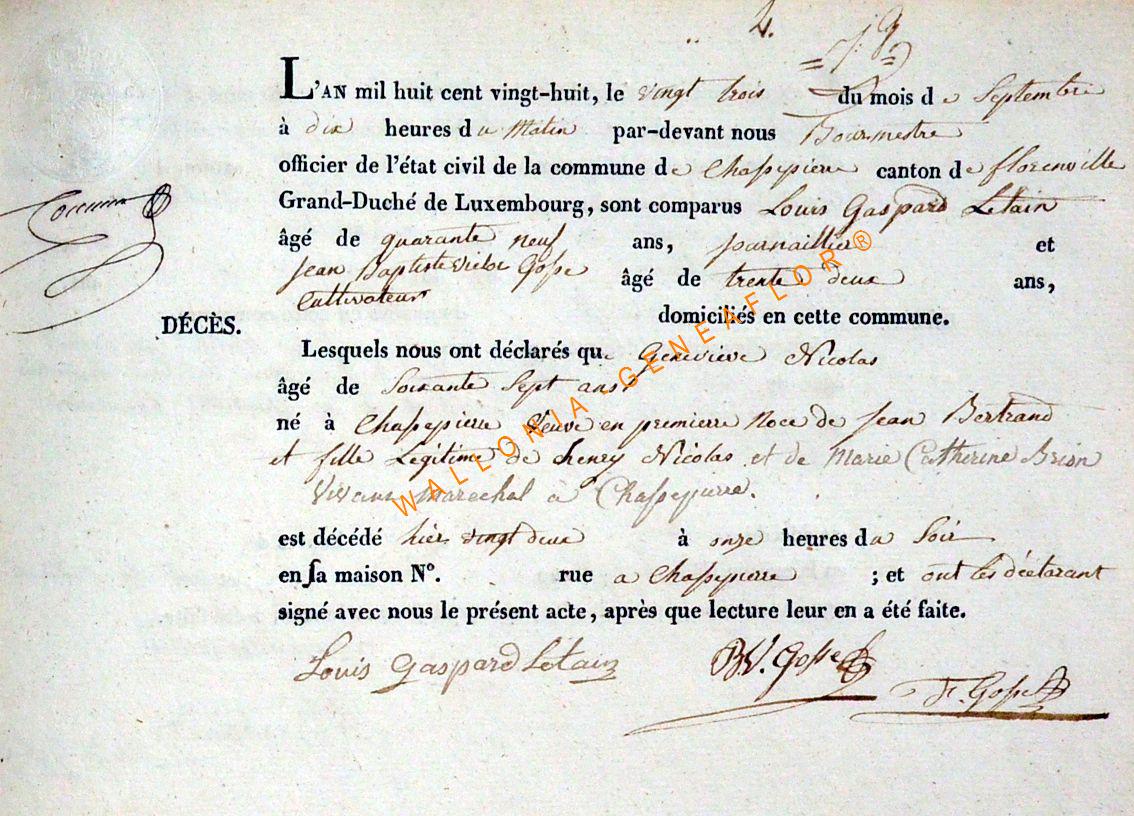 4.
L'AN mil huit cent vingt-huit, le vingt trois du mois de Septembre
à dix heures du Matin par-devant nous Bourmestre
officier de l'état civil de la commune de Chassepierre canton de florenville
Grand-Duché de Luxembourg, sont comparus Louis Gaspard Letain
âgé de quarante neuf ans, journaillier et
Jean Baptiste victor Gosse âgé de trente deux ans,
Cultivateur
DÉCÈS.
domiciliés en cette commune.
Lesquels nous ont déclarés que Genevieve Nicolas
âgé de Soixante Sept ans
né à Chassepierre Veuve en premierre Noce de Jean Bertrand
et fille Légitime de henry Nicolas et de Marie Catherine Brion
Vivant Marechal à Chassepierre.
est décédé hier vingt deux à onze heures du Soir
en sa maison N°. rue a Chassepierre ; et ont les déclarant
signé avec nous le présent acte, après que lecture leur en a été faite.
Louis Gaspard Letain B.V. Gosse
F. Gosse
WALLONIA GENEAFLOR ®